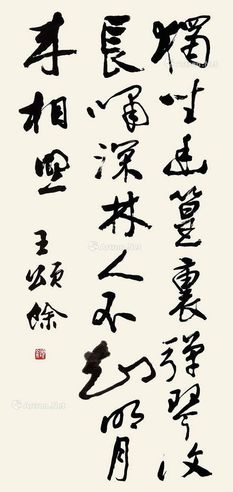 獨坐幽篁裏彈琴復
長嘯深林人不知明月
來相照
王頌餘